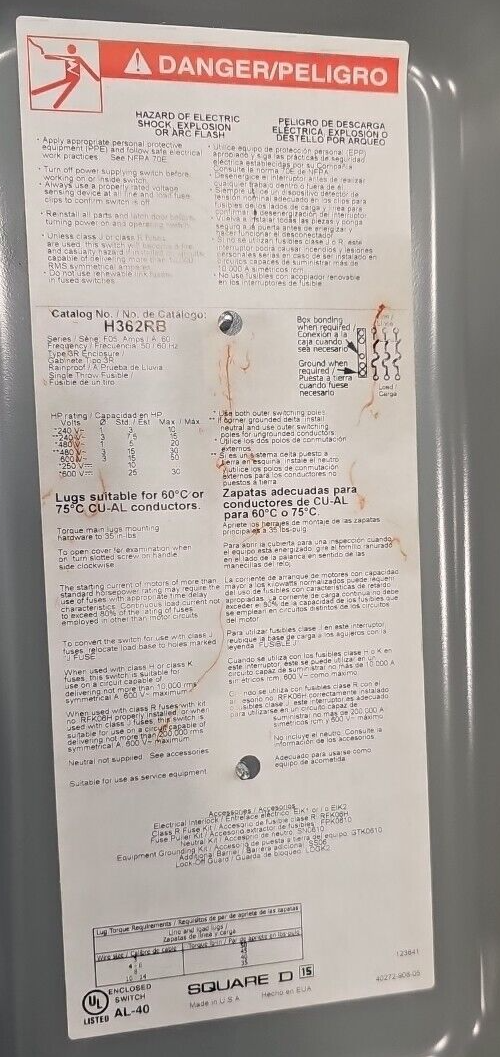 DANGER/PELIGRO
HAZARD OF ELECTRIC
SHOCK, EXPLOSION
OR ARC FLASH
PELIGRO DE DESCARGA
ELÉCTRICA, EXPLOSIÓN O
DESTELLO POR ARQUEO
· Apply appropriate personal protective
equipment (PPE) and follow safe electrical
work practices. See NFPA 70E.
· Turn off power supplying switch before
working on or inside switch.
· Always use a properly rated voltage
sensing device at all line and load fuse
clips to confirm switch is off.
· Reinstall all parts and latch door before
turning power on and operating switch.
· Unless class J or class R fuses
are used, this switch
capable of delivering more than
RMS symmetrical amperes.
· Do not use renewable link fuses
in fused switches.
· Utilice equipo de protección personal (EPP)
apropiado y siga las prácticas de seguridad
eléctrica establecidas por su Compañía.
Consulte la norma 70E de NFPA.
· Desenergice el interruptor antes de realizar
cualquier trabajo dentro o fuera de él.
· Siempre utilice un dispositivo detector de
tensión nominal adecuado en los clips para
fusibles de los lados de carga y línea para
confirmar la desenergización del interruptor.
· Vuelva a instalar todas las piezas y ponga
seguro a la puerta antes de energizar y
hacer funcionar el desconectador.
· Si no se utilizan fusibles clase J o R, este
interruptor podría causar incendios y lesiones
personales serias en caso de ser instalado en
circuitos capaces de suministrar más de
10 000 A simétricos rcm.
· No use fusibles con acoplador renovable
en los interruptores de fusible.
Catalog No. / No. de Catálogo:
H362RB
Series / Serie: F05 Amps / A: 60
Frequency / Frecuencia: 50 / 60 Hz
Type 3R Enclosure /
Gabinete Tipo 3R
Rainproof / A Prueba de Lluvia
Single Throw Fusible /
Fusible de un tiro
Box bonding
when required /
Conexión a la
caja cuando
sea necesario
Ground when
required /
Puesta a tierra
cuando fuese
necesario
Line /
Línea
Load /
Carga
HP rating / Capacidad en HP
Volts Ø Std. / Est. Max / Máx
*240 V~ 1 3 10
**240 V~ 3 7.5 15
*480 V~ 1 5 20
**480 V~ 3 15 30
600 V~ 3 15 50
*250 V 10
*600 V 25 30
* Use both outer switching poles
** If corner grounded delta, install
neutral and use outer switching
poles for ungrounded conductors.
* Utilice los dos polos de conmutación
externos.
** Si es un sistema delta puesto a
tierra en esquina, instale el neutro
y utilice los polos de conmutación
externos para los conductores no
puestos a tierra.
Lugs suitable for 60°C or
75°C CU-AL conductors.
Torque main lugs mounting
hardware to 35 in-lbs
To open cover for examination when
on, turn slotted screw on handle
side clockwise.
The starting current of motors of more than
standard horsepower rating may require the
use of fuses with appropriate time delay
characteristics. Continuous load current not
to exceed 80% of the rating of fuses
employed in other than motor circuits.
To convert the switch for use with class J
fuses relocate load base to holes marked
"J FUSE"
When used with class H or class K
fuses, this switch is suitable for
use on a circuit capable of
delivering not more than 10,000 rms
symmetrical A, 600 V~ maximum.
When used with class R fuses with kit
no. RFK06H properly installed, or when
used with class J fuses, this switch is
suitable for use on a circuit capable of
delivering not more than 200,000 rms
symmetrical A, 600 V~ maximum.
Neutral not supplied. See accessories.
Suitable for use as service equipment.
Zapatas adecuadas para
conductores de CU-AL
para 60°C o 75°C.
Apriete los herrajes de montaje de las zapatas
principales a 35 lbs-pulg.
Para abrir la cubierta para una inspección cuando
el equipo está energizado, gire el tornillo ranurado
en el lado de la palanca en sentido de las
manecillas del reloj.
La corriente de arranque de motores con capacidad
mayor a los kilowatts normalizados puede requerir
del uso de fusibles con características de retardo
apropiadas. La corriente de carga continua no debe
exceder el 80% de la capacidad de los fusibles que
se emplean en circuitos distintos de los circuitos
del motor.
Para utilizar fusibles clase J en este interruptor,
reubique la base de carga a los agujeros con la
leyenda "FUSIBLE J".
Cuando se utiliza con los fusibles clase H o K en
este interruptor, éste se puede utilizar en un
circuito capaz de suministrar no más de 10 000 A
simétricos rcm, 600 V~ como máximo.
Cuando se utiliza con fusibles clase R con el
accesorio no. RFK06H correctamente instalado
o fusibles clase J, este interruptor es adecuado
para utilizarse en un circuito capaz de
suministrar no más de 200 000 A
simétricos rcm y 600 V~ máximo.
No incluye el neutro. Consulte la
información de los accesorios.
Adecuado para usarse como
equipo de acometida.
Accessories / Accesorios
Electrical Interlock / Entrelace eléctrico: EIK1 or / o EIK2
Class R Fuse Kit / Accesorio de fusible clase R: RFK06H
Fuse Puller Kit / Accesorio extractor de fusibles: FPK0610
Neutral Kit / Accesorio de neutro: SN0610
Equipment Grounding Kit / Accesorio de puesta a tierra del equipo: GTK0610
Additional Barrier / Barrera adicional: SS06
Lock-Off Guard / Guarda de bloqueo: LOGK2
Lug Torque Requirements / Requisitos de par de apriete de las zapatas
Line and load lugs /
Zapatas de línea y carga
Wire size / Calibre de cable
Torque lb-in / Par de apriete en lbs-pulg
45
40
8
10 14 35
UL
LISTED
ENCLOSED
SWITCH
AL-40
SQUARE D 15
Made in U.S.A. Hecho en EUA
123641
40272-808-05